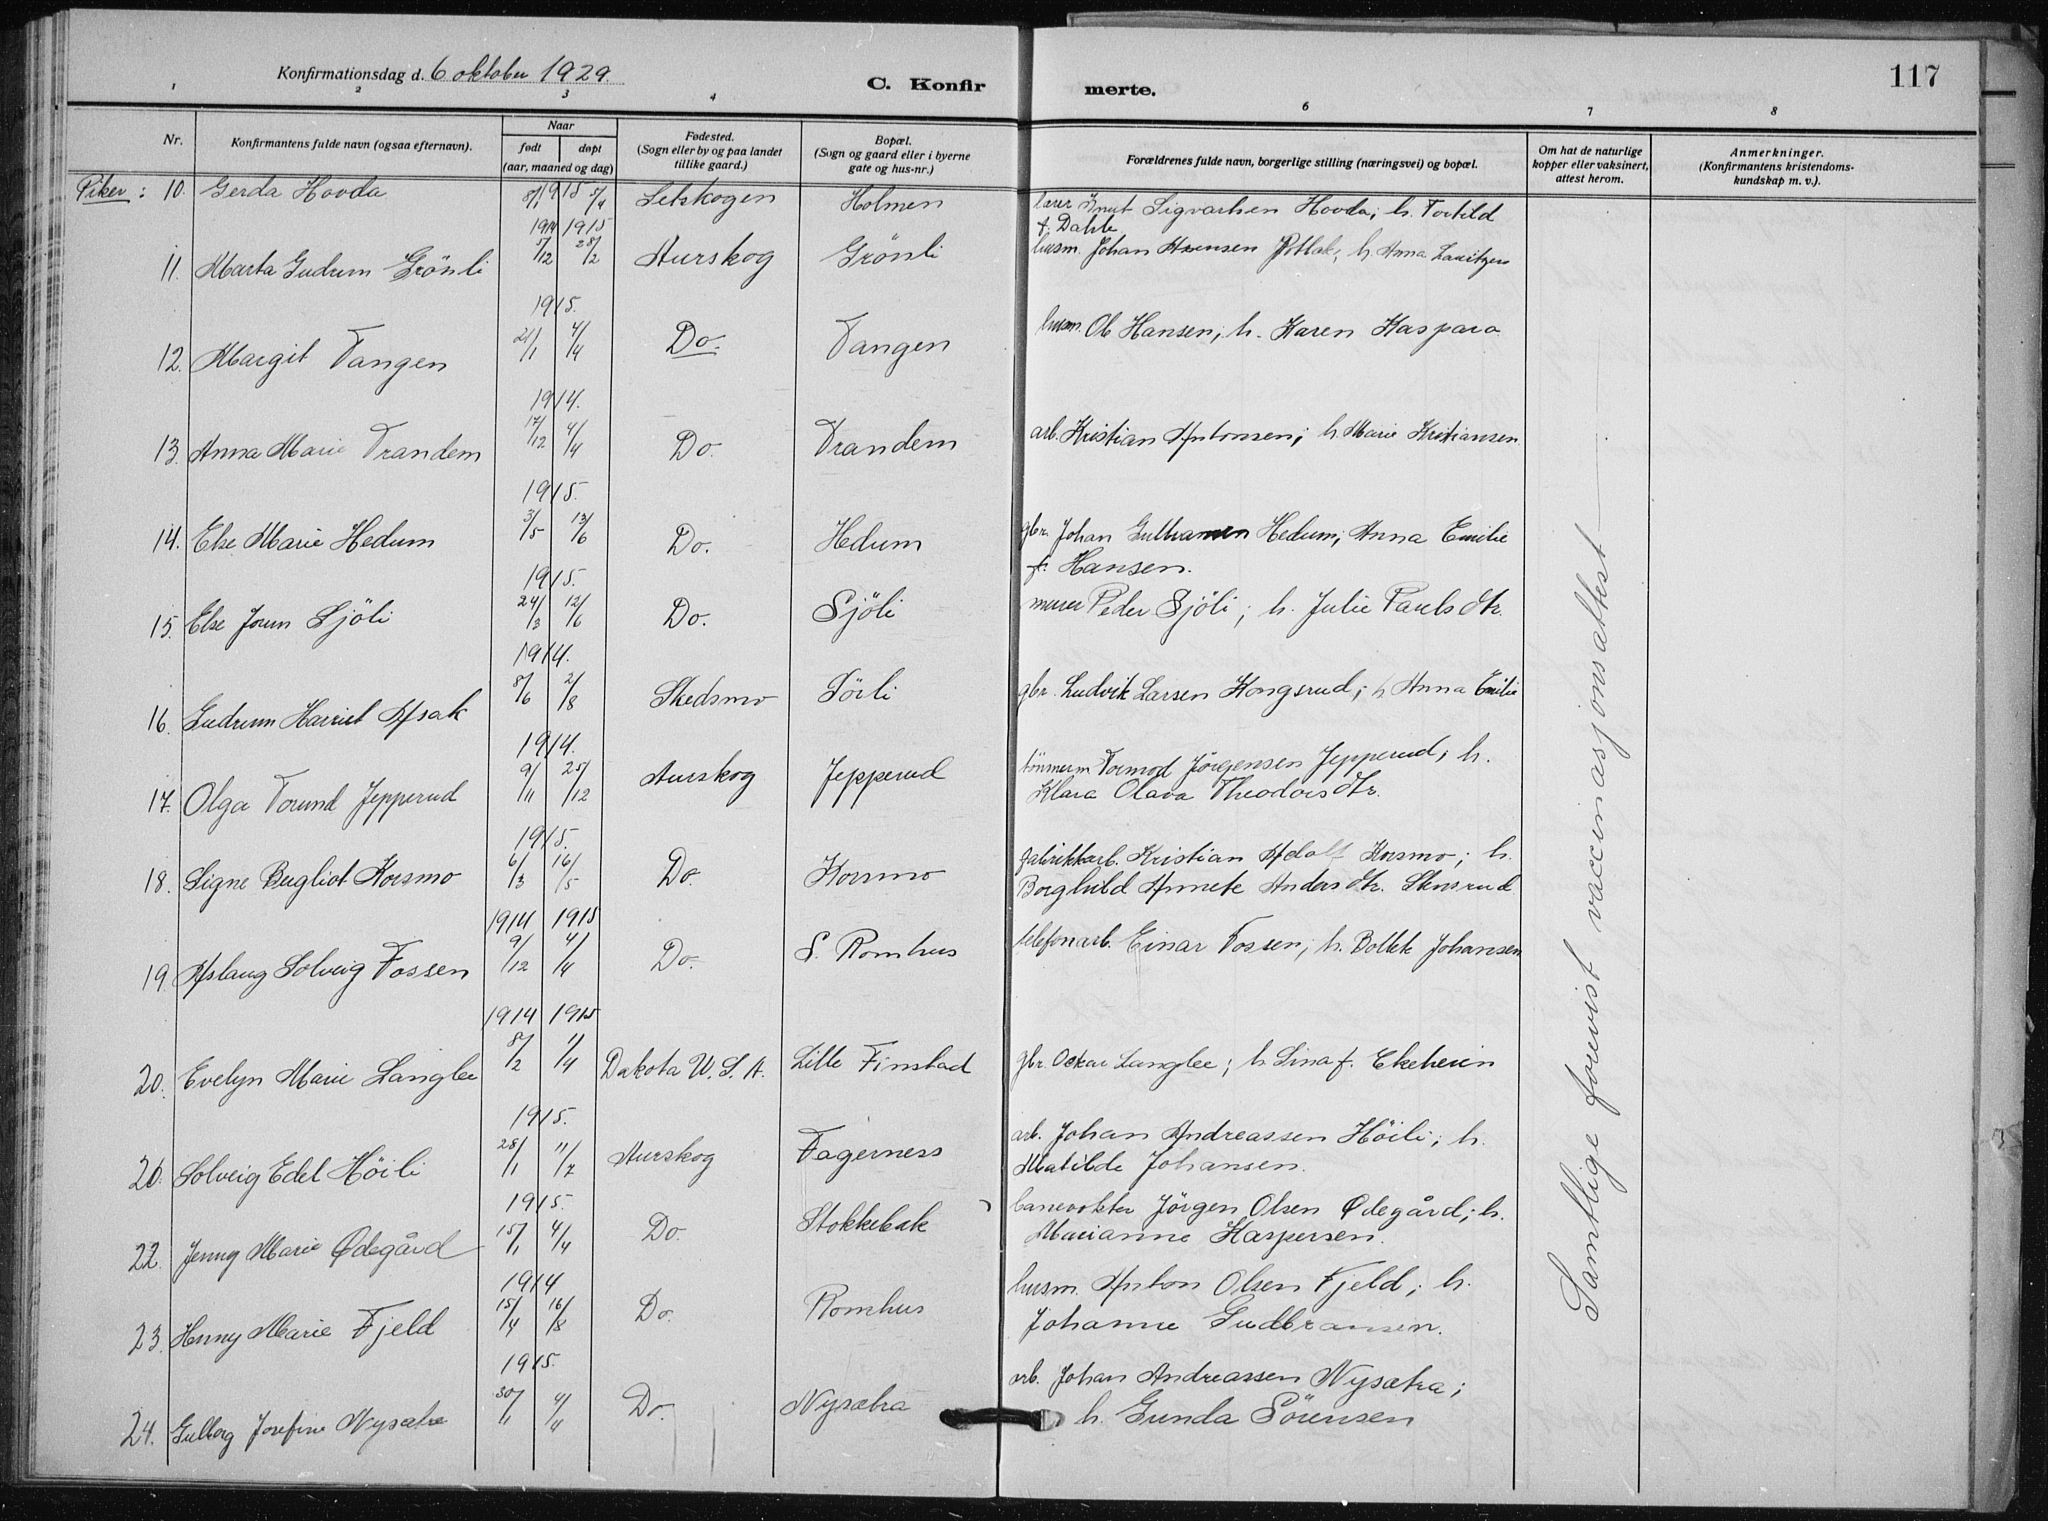 Konfirmationsdag d. 6 oktober 1929.
C. Konfirmerte.
117
1 2 3 4 6 7 8
Nr.
Konfirmantens fulde navn (ogsaa efternavn).
Naar
født døpt
(aar, maaned og dag)
Fødested.
(Sogn eller by og paa landet
tillike gaard.)
Bopæl.
(Sogn og gaard eller i byerne
gate og hus-nr.)
Forældrenes fulde navn, borgerlige stilling (næringsvei) og bopæl.
Om hat de naturlige
kopper eller vaksinert,
attest herom.
Anmerkninger.
(Konfirmantens kristendoms-
kundskap m. v.).
Piker : 10. Gerda Hovda 8/1 1915 5/4 Setskogen Holmen lærer Knut Sigvartsen Hovda; h. Tortild
f. Dahle
1914 1915
11. Marta Gudrun Grönli 5/12 28/2 Aurskog Grönli husm. Johan h. Anna
1915.
12. Margit Tangen 21/1 4/4 Do. Tangen husm. Ole Hansen; h. Karen Kaspara
1914.
13. Anna Marie Trandem 17/12 4/4 Do. Trandem arb. Kristian Antonsen; h. Marie Kristiansen
1915.
14. Else Marie Hedum 3/5 13/6 Do. Hedum gbr. Johan Hedum; Anna Emilie
f. Hansen.
1915.
15. Else Jorun Sjöli 24/3 12/6 Do. Sjöli murer Peder Sjöli; h. Julie Paulsdtr.
1914.
16. Gudrun Harriet Asak 8/6 2/8 Skedsmo Törli gbr. Ludvik Larsen Kongsrud; h. Anna Emilie
1914.
17. Olga Torund Jepperud 9/11 25/12 Aurskog Jepperud tömmerm Tormod Jörgensen Jepperud; h.
Klara Olava Theodorsdtr.
1915.
18. Signe Bergliot Korsmo 6/3 16/5 Do. Korsmo fabrikkarb. Kristian Adolf Korsmo; h.
Borghild Annete Andersdtr. Stensrud
1914 1915
19. Aslaug Solveig Fossen 9/12 4/4 Do. S. Romhus telefonarb. Einar Fossen; h. Bollek Johansen
1914 1915
20. Evelyn Marie Langlee 8/2 1/4 Dakota U. S. A. Lille Finstad gbr. Oskar Langlee; h. Lina f. Ekeheien
1915.
20. Solveig Edel Höili 28/1 11/7 Aurskog Fagerness arb. Johan Andreassen Höili; h.
Matilde Johansen.
1915.
22. Jenny Marie Ødegård 15/1 4/4 Do. Stokkebæk banevokter Jörgen Olsen Ødegård; h.
Marianne Kaspersen.
1914
23. Henny Marie Fjeld 15/4 16/8 Do. Romhus husm. Anton Olsen Fjeld; h.
Johanne Gudbransen.
1915.
24. Gulborg Josefine Nysætra 30/1 4/4 Do. Nysætra arb. Johan Andreassen Nysætra;
h. Gunda Sörensen
Samtlige forevist vaccinasjonsattest